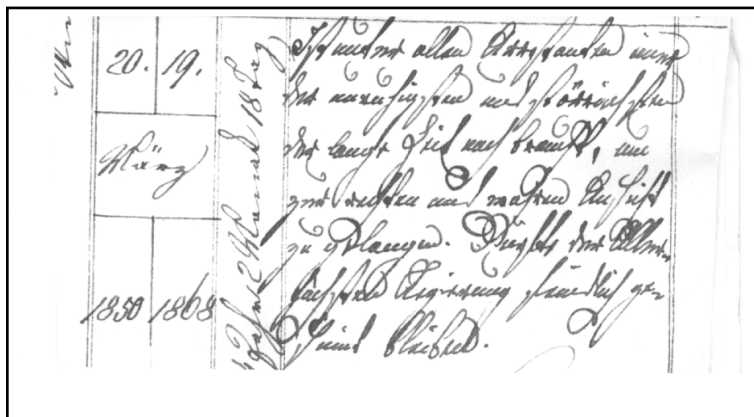 20. 19.
März
1850 1868
Jahre 12 Monat 18 Tag
Ist unter allen Arrestanten einer
der unruhigsten und störrischsten
der lange Zeit noch braucht, um
zur rechten und wahren Ansicht
zu gelangen. Dürfte der Aller-
höchsten Regierung feindlich ge-
sinnt bleiben.